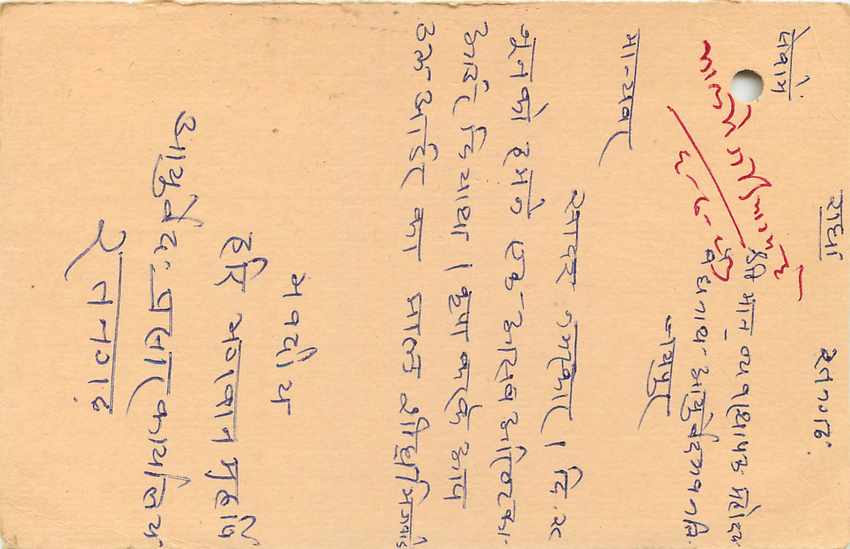 सेवामें
राधा
रतनगढ
श्री मान् व्यवस्थापक महोदय
वैद्यनाथ आयुर्वेद भवन लि
जयपुर
मान्यवर
सादर नमस्कार। दि. २८
जून को हमने एक आसव अरिष्ट का
आर्डर दिया था। कृपा करके आप
उक्त आर्डर का माल शीघ्र भिजावें
भवदीय
हरि भगवान
आयुर्वेद प्रचार कार्यालय
रतनगढ